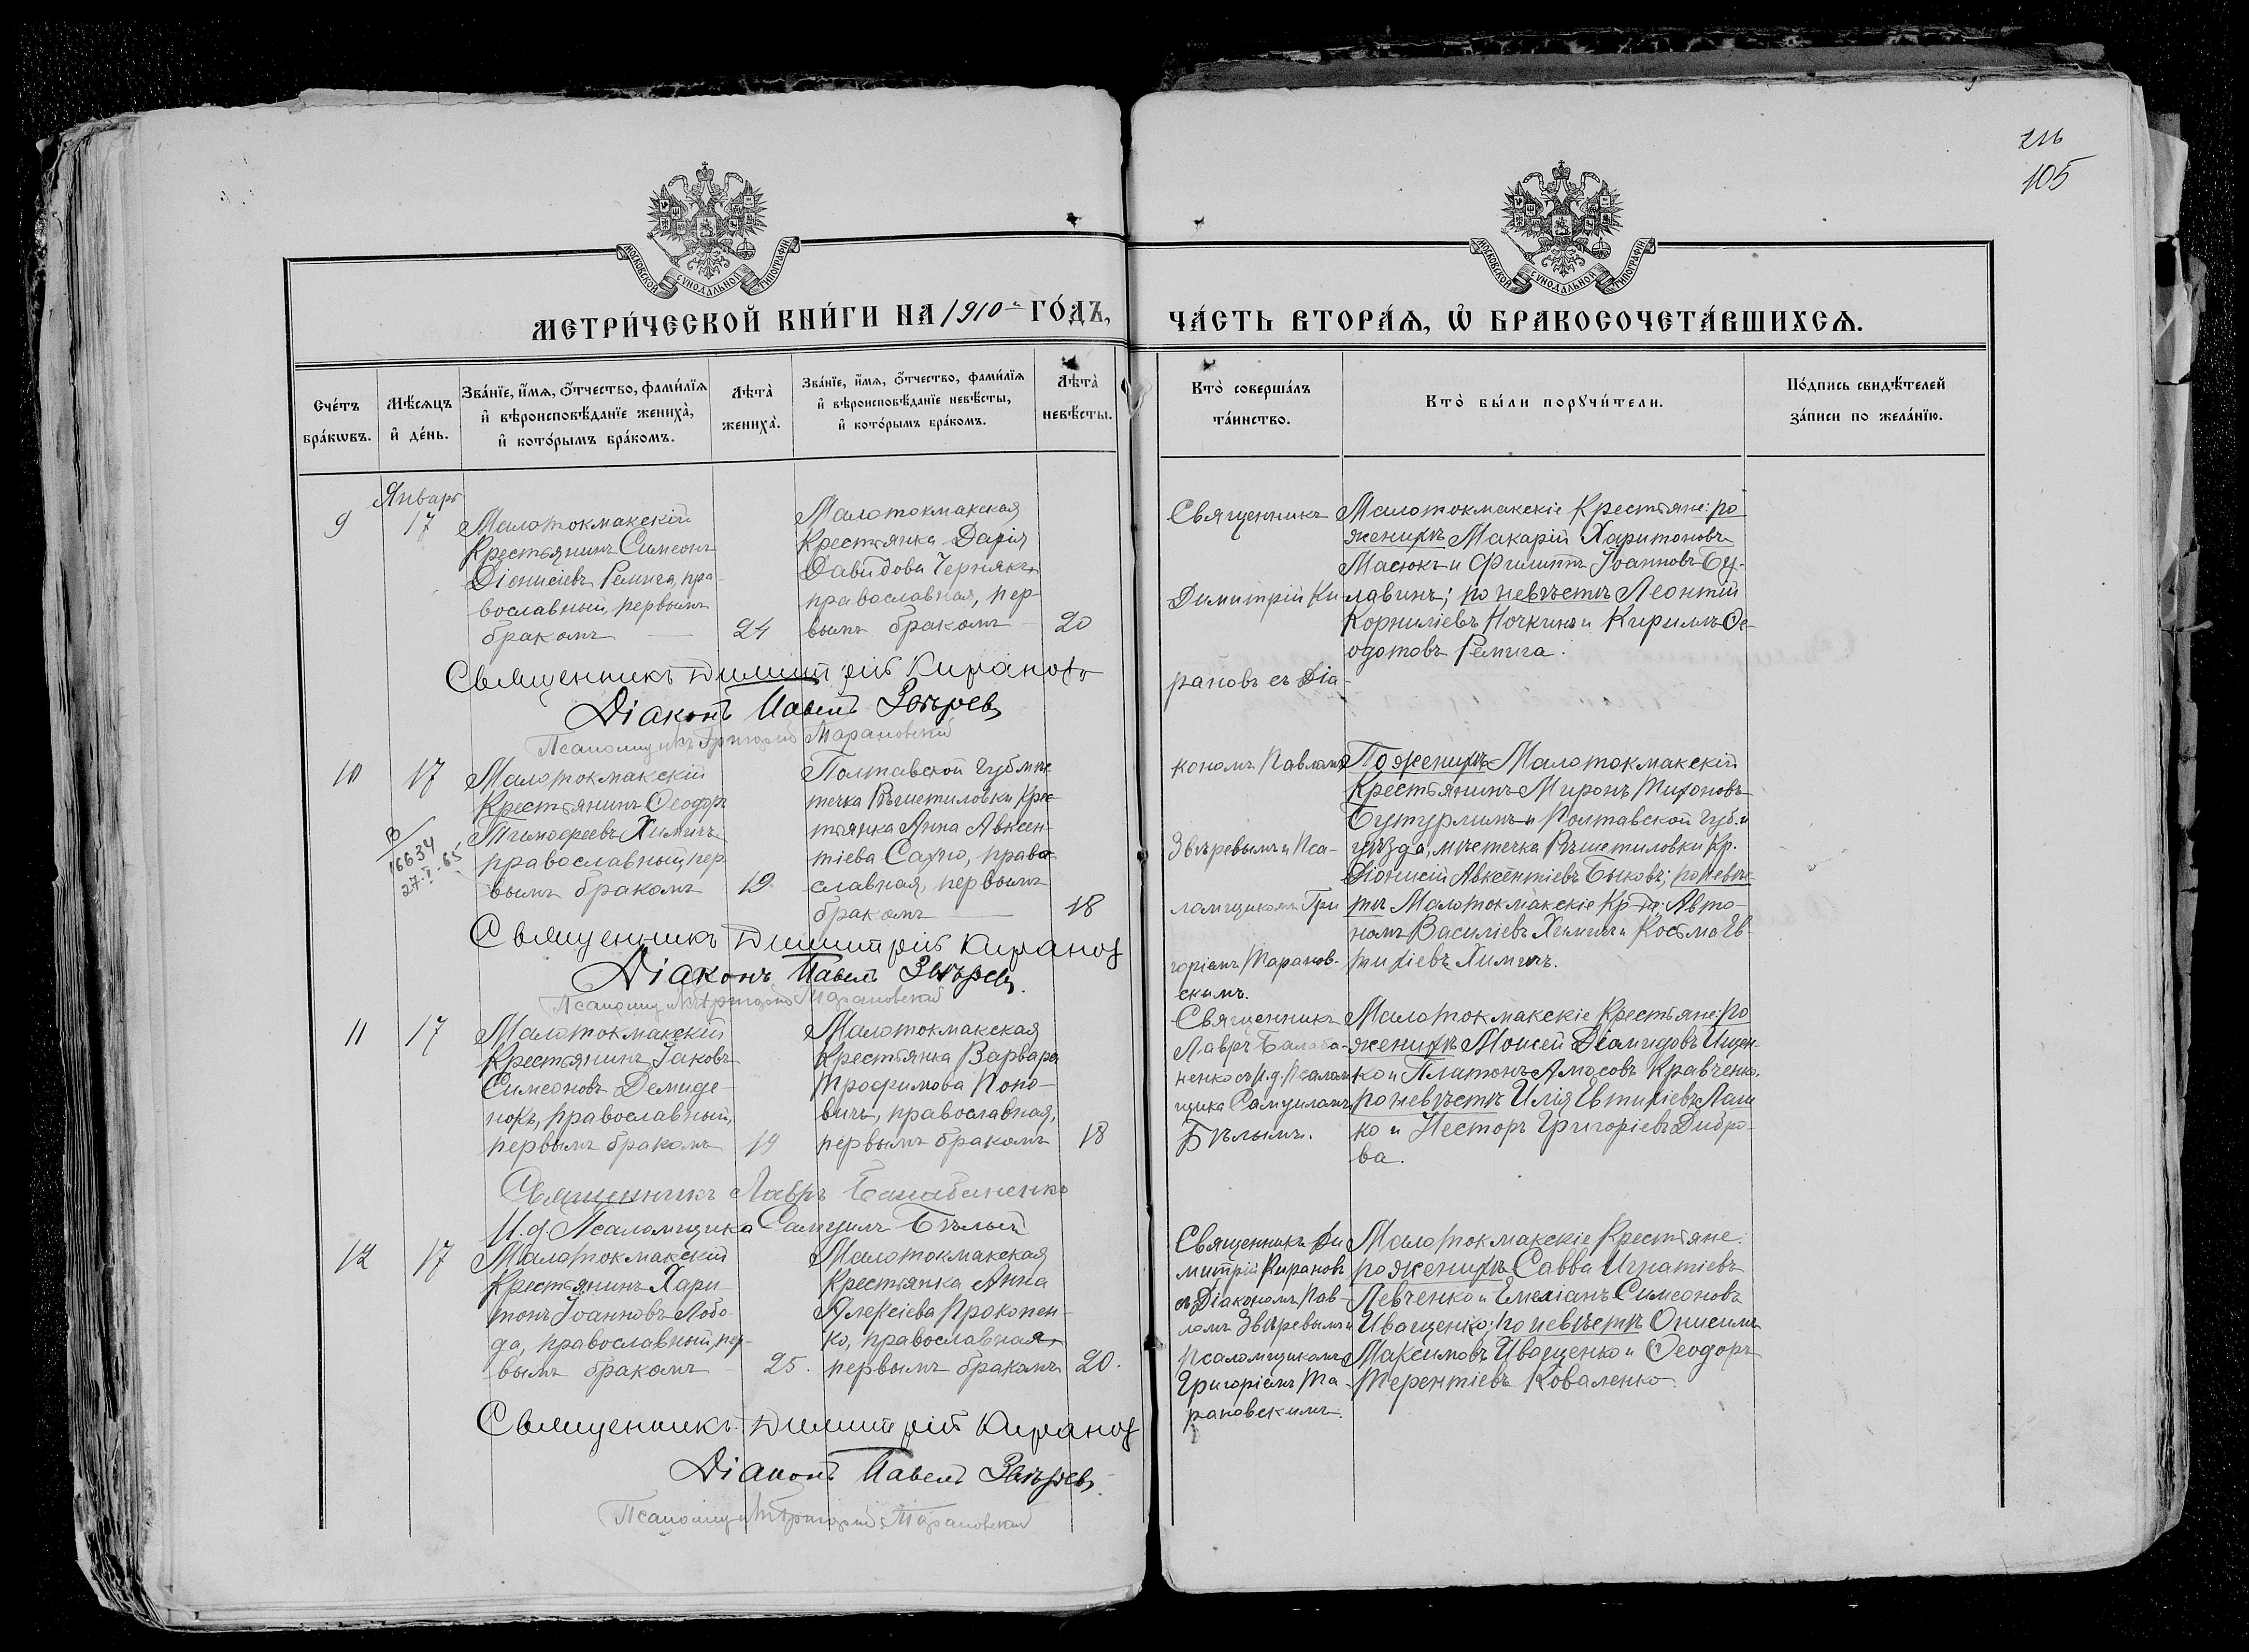 216
105
МОСКОВСКОЙ СѴНОДАЛЬНОЙ ТИПОГРАФІИ
МОСКОВСКОЙ СѴНОДАЛЬНОЙ ТИПОГРАФІИ
МЕТРИ́ЧЕСКОЙ КНИ́ГИ НА 1910й ГО́ДЪ,
ЧА́СТЬ ВТОРА́Ѧ, Ѽ БРАКОСОЧЕТА́ВШИХСѦ.
Сче́тъ
бра́кѡвъ.
Мѣ́сѧцъ
и҆ де́нь.
Зва́нїе, и҆́мѧ, ѻ҆́тчество, фами́лїѧ
и҆ вѣроисповѣ́данїе жениха̀,
и҆ кото́рымъ бра́комъ.
Лѣ́та̀
жениха̀.
Зва́нїе, и҆́мѧ, ѻ҆́тчество, фами́лїѧ
и҆ вѣроисповѣ́данїе невѣ́сты,
и҆ кото́рымъ бра́комъ.
Лѣ́та̀
невѣ́сты.
Кто̀ соверша́лъ
та́инство.
Кто̀ бы́ли порꙋчи́тели.
По́дпись свидѣ́телей
за́писи по жела́нїю.
Январь
9
17
Малотокмакскій
крестьянинъ Симеонъ
Діонисіевъ Ремига, пра-
вославный, первымъ
бракомъ
24
Малотокмакская
крестьянка Дарія
Давидова Чернякъ,
православная, пер-
вымъ бракомъ
20
Священникъ
Димитрій Ки-
рановъ съ Діа-
Малотокмакскіе крестьяне: по
женихѣ Макарій Харитоновъ
Масюкъ и Филиппъ Іоанновъ Бу-
лавинъ; по невѣстѣ Леонтій
Корниліевъ Ночкинъ и Кириллъ Ѳе-
одотовъ Ремига.
Священникъ Димитрій Кирановъ
Діаконъ Павелъ Звѣревъ
Псаломщикъ Григорій Марановскій
10
17
В/
16634
27-I-65
Малотокмакскій
крестьянинъ Ѳеодоръ
Тимофеевъ Химичъ
православный, пер-
вымъ бракомъ
19
Полтавской губ. мѣс-
течка Рѣшетиловки кре-
стьянка Анна Авксен-
тіева Сахно, право-
славная, первымъ
бракомъ
18
кономъ Павломъ
Звѣревымъ и Пса-
ломщикомъ Гри-
горіемъ Маранов-
скимъ.
По женихѣ Малотокмакскій
крестьянинъ Миронъ Тихоновъ
Бутурлимъ и Полтавской губ. и
уѣзда, мѣстечка Рѣшетиловки кр.
Діонисій Авксентіевъ Быковъ; по невѣс-
тѣ Малотокмакскіе кр-не: Авто-
номъ Василіевъ Химичъ и Косма Ев-
тихіевъ Химичъ.
Священникъ Димитрій Кирановъ
Діаконъ Павелъ Звѣревъ.
Псаломщикъ Григорій Марановскій
11
17
Малотокмакскій
крестьянинъ Іаковъ
Симеоновъ Демиде-
нокъ, православный,
первымъ бракомъ
19
Малотокмакская
крестьянка Варвара
Трофимова Попо-
вичъ, православная,
первымъ бракомъ
18
Священникъ
Лавръ Балаба-
ненко съ И. д. псалом-
щика Самуиломъ
Бѣлымъ.
Малотокмакскіе крестьяне: по
женихѣ Моисей Діамидовъ Ищен-
ко и Платонъ Амосовъ Кравченко,
по невѣстѣ Илія Евтихіевъ Ляш-
ко и Несторъ Григоріевъ Дибро-
ва.
Священникъ Лавръ Балабаненко
И. д. Псаломщика Самуилъ Бѣлый
12
17
Малотокмакскій
крестьянинъ Хари-
тонъ Іоанновъ Лобо-
да, православный, пер-
вымъ бракомъ
25.
Малотокмакская
крестьянка Анна
Алексіева Прокопен-
ко, православная,
первымъ бракомъ
20.
Священникъ Ди-
митрій Кирановъ
съ Діакономъ Пав-
ломъ Звѣревымъ и
Псаломщикомъ
Григоріемъ Ма-
рановскимъ.
Малотокмакскіе крестьяне:
по женихѣ Савва Игнатіевъ
Левченко и Емеліанъ Симеоновъ
Иващенко; по невѣстѣ Онисимъ
Максимовъ Иващенко и Ѳеодоръ
Терентіевъ Коваленко.
Священникъ Димитрій Кирановъ
Діаконъ Павелъ Звѣревъ.
Псаломщикъ Григорій Марановскій